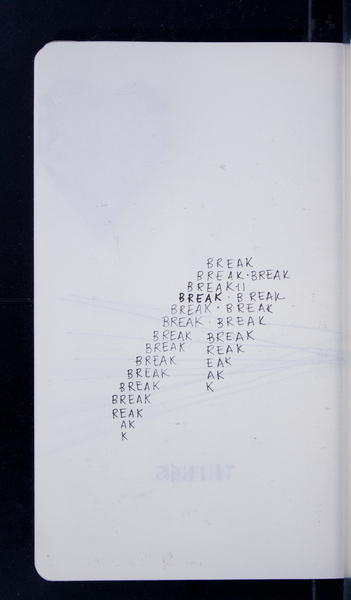 BREAK
BREAK·BREAK
BREAK
BREAK · BREAK
BREAK · BREAK
BREAK · BREAK
BREAK BREAK
BREAK REAK
BREAK EAK
BREAK AK
BREAK K
BREAK
REAK
AK
K
THINGS